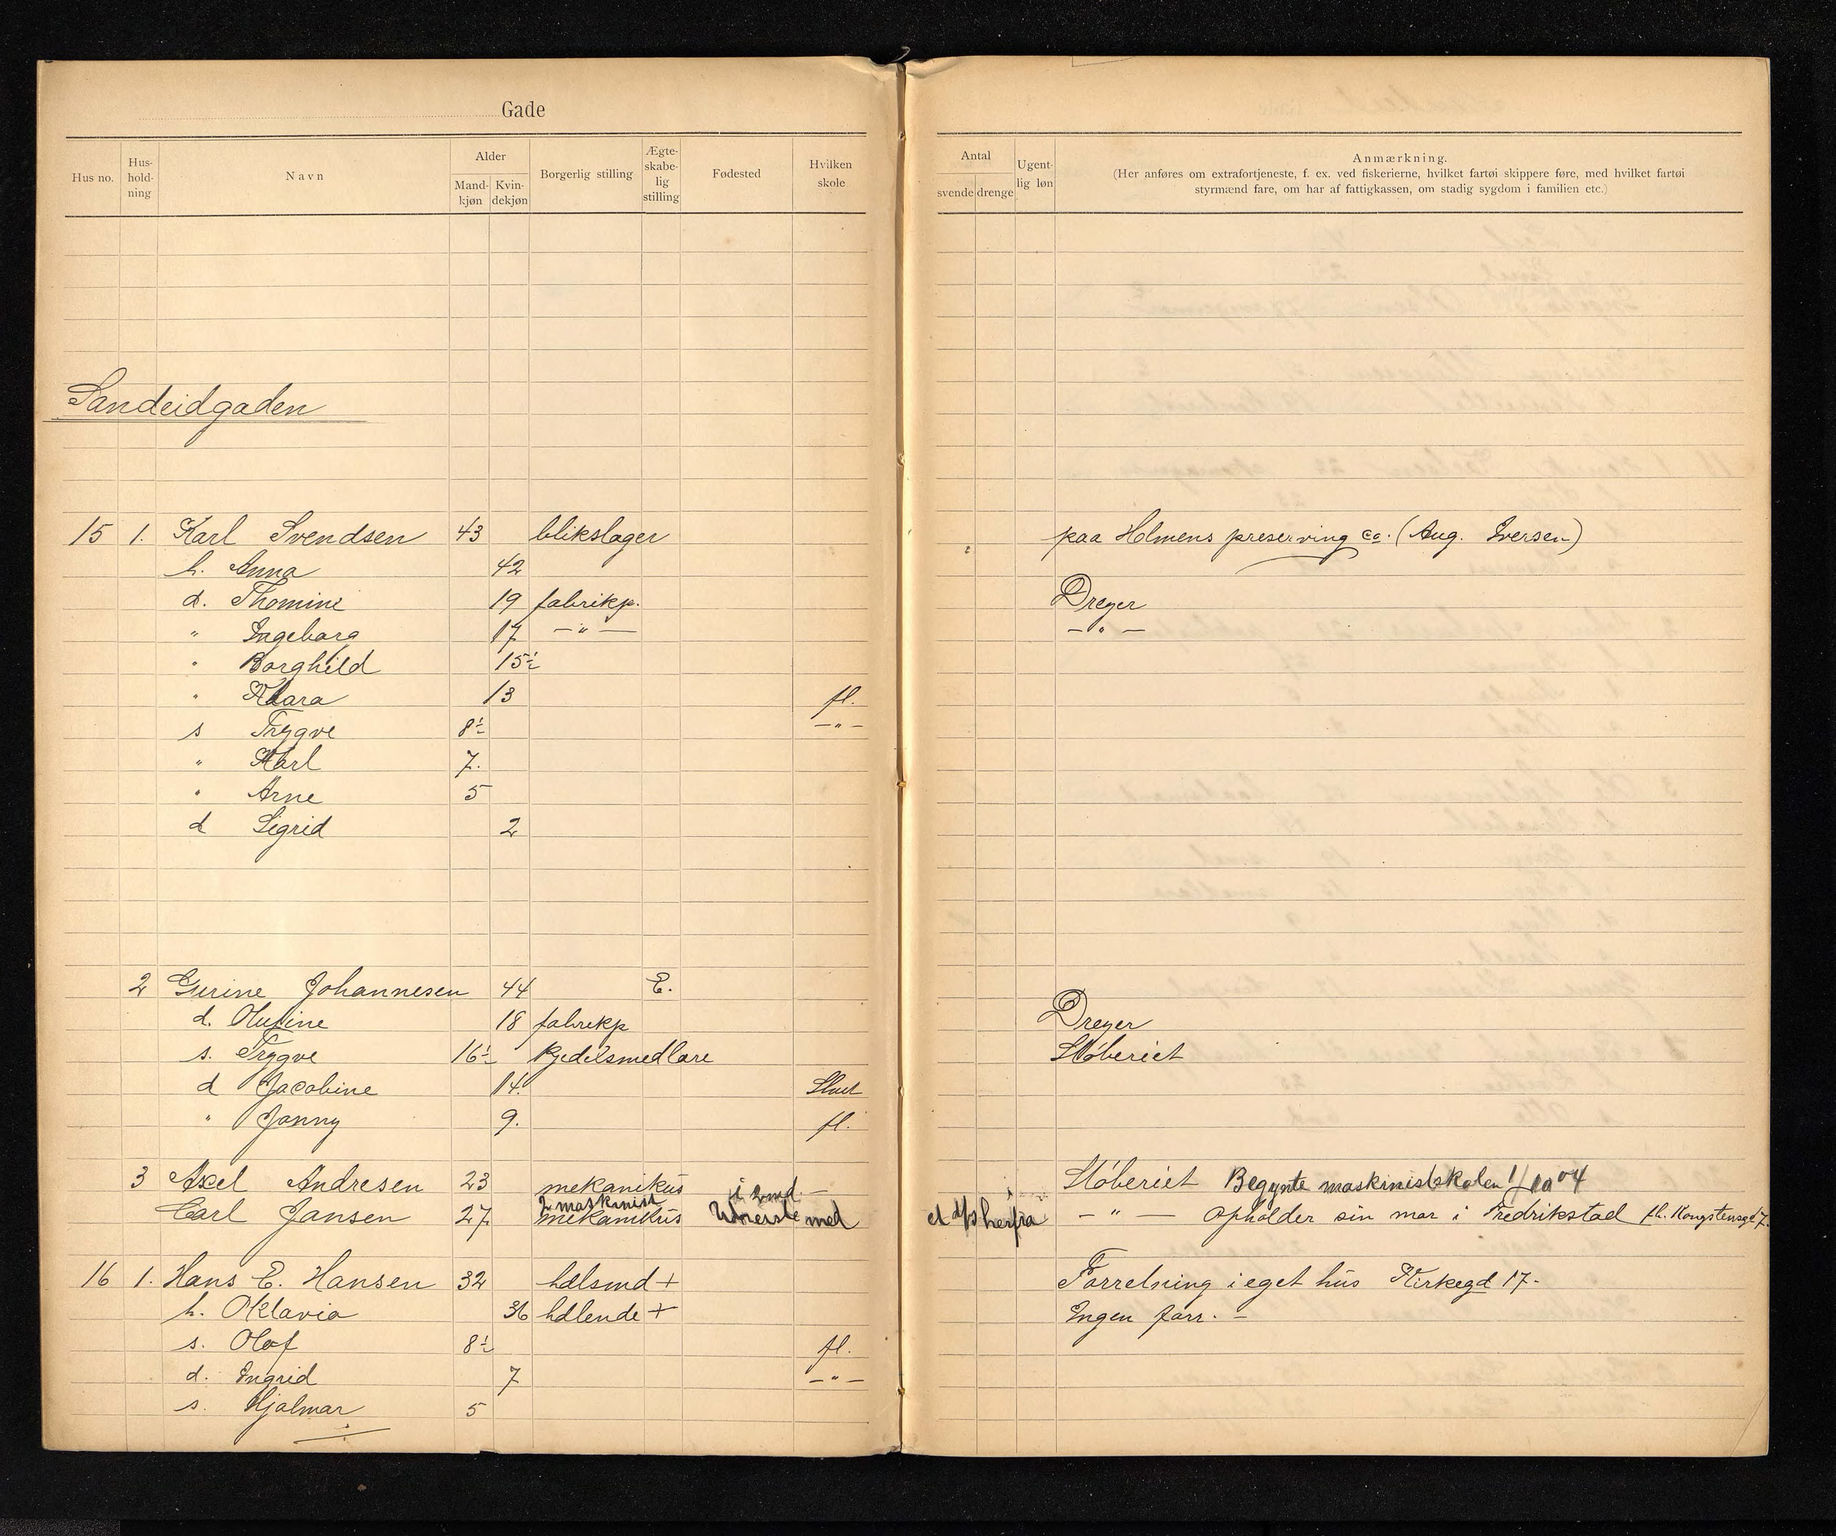 Gade
Hus no. Hus-hold-ning Navn Alder Mand-kjøn Kvin-dekjøn Borgerlig stilling Ægte-skabe-lig stilling Fødested Hvilken skole
Antal svende drenge Ugent-lig løn Anmærkning.
(Her anføres om extrafortjeneste, f. ex. ved fiskerierne, hvilket fartøi skippere føre, med hvilket fartøi
styrmænd fare, om har af fattigkassen, om stadig sygdom i familien etc.)
Sandeidgaden
15 1. Karl Svendsen 43 blikslager paa Holmens preserving co. (Aug. Iversen)
h. Anna 42
d. Thomine 19 fabrikp. Dreyer
" Ingeborg 17 — " — — " —
" Borghild 15½
" Klara 13 fl.
s Trygve 8½ — " —
" Karl 7.
" Arne 5
d Sigrid 2
2 Gurine Johannesen 44 E.
d. Olufine 18 fabrikp Dreyer
s. Trygve 16½ kjedelsmedlære Støberiet
d Jacobine 14. Slut
" Janny 9. fl.
3 Axel Andresen 23 mekanikus Støberiet Begynte maskinistskolen 1/10 04
2 maskinist i 2md.
Carl Jansen 27 mekanikus med et d/s herfra — " — Opholder sin mor i Fredrikstad
16 1. Hans E. Hansen 32 hdlsmd + Forretning i eget hus Kirkegd 17.
h. Oktavia 36 hdlende + Ingen forr. —
s. Olaf 8½ fl.
d. Ingrid 7 — " —
s. Hjalmar 5